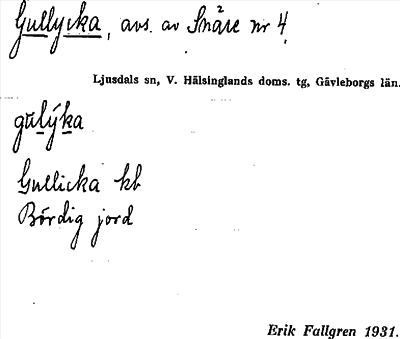 Gullycka, avs. av Snåre nr 4
Ljusdals sn, V. Hälsinglands doms. tg, Gävleborgs län.
gulýka
Gullicka kb
Bördig jord
Erik Fallgren 1931.